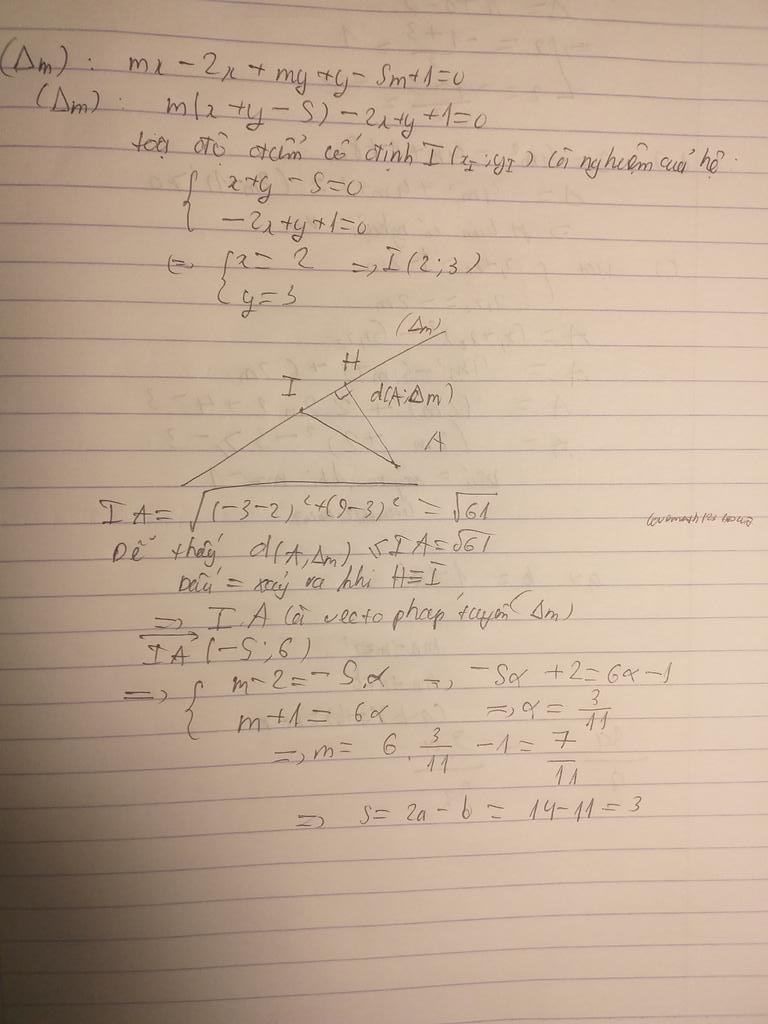 (Δm): mx - 2x + my + y - 5m + 1 = 0
(Δm): m(x + y - 5) - 2x + y + 1 = 0
toạ độ điểm cố định I(x_I; y_I) là nghiệm của hệ:
{ x + y - 5 = 0
- 2x + y + 1 = 0
⇔ { x = 2 ⇒ I(2; 3)
y = 3
(Δm)
H
I
d(A; Δm)
A
IA = √((-3-2)² + (9-3)²) = √61
Dễ thấy d(A, Δm) ≤ IA = √61
Dấu = xảy ra khi H ≡ I
⇒ IA là vecto pháp tuyến (Δm)
IA (-5; 6)
⇒ { m - 2 = -5.α ⇒ -5α + 2 = 6α - 1
m + 1 = 6α ⇒ α = 3/11
⇒ m = 6 . 3/11 - 1 = 7/11
⇒ S = 2a - b = 14 - 11 = 3